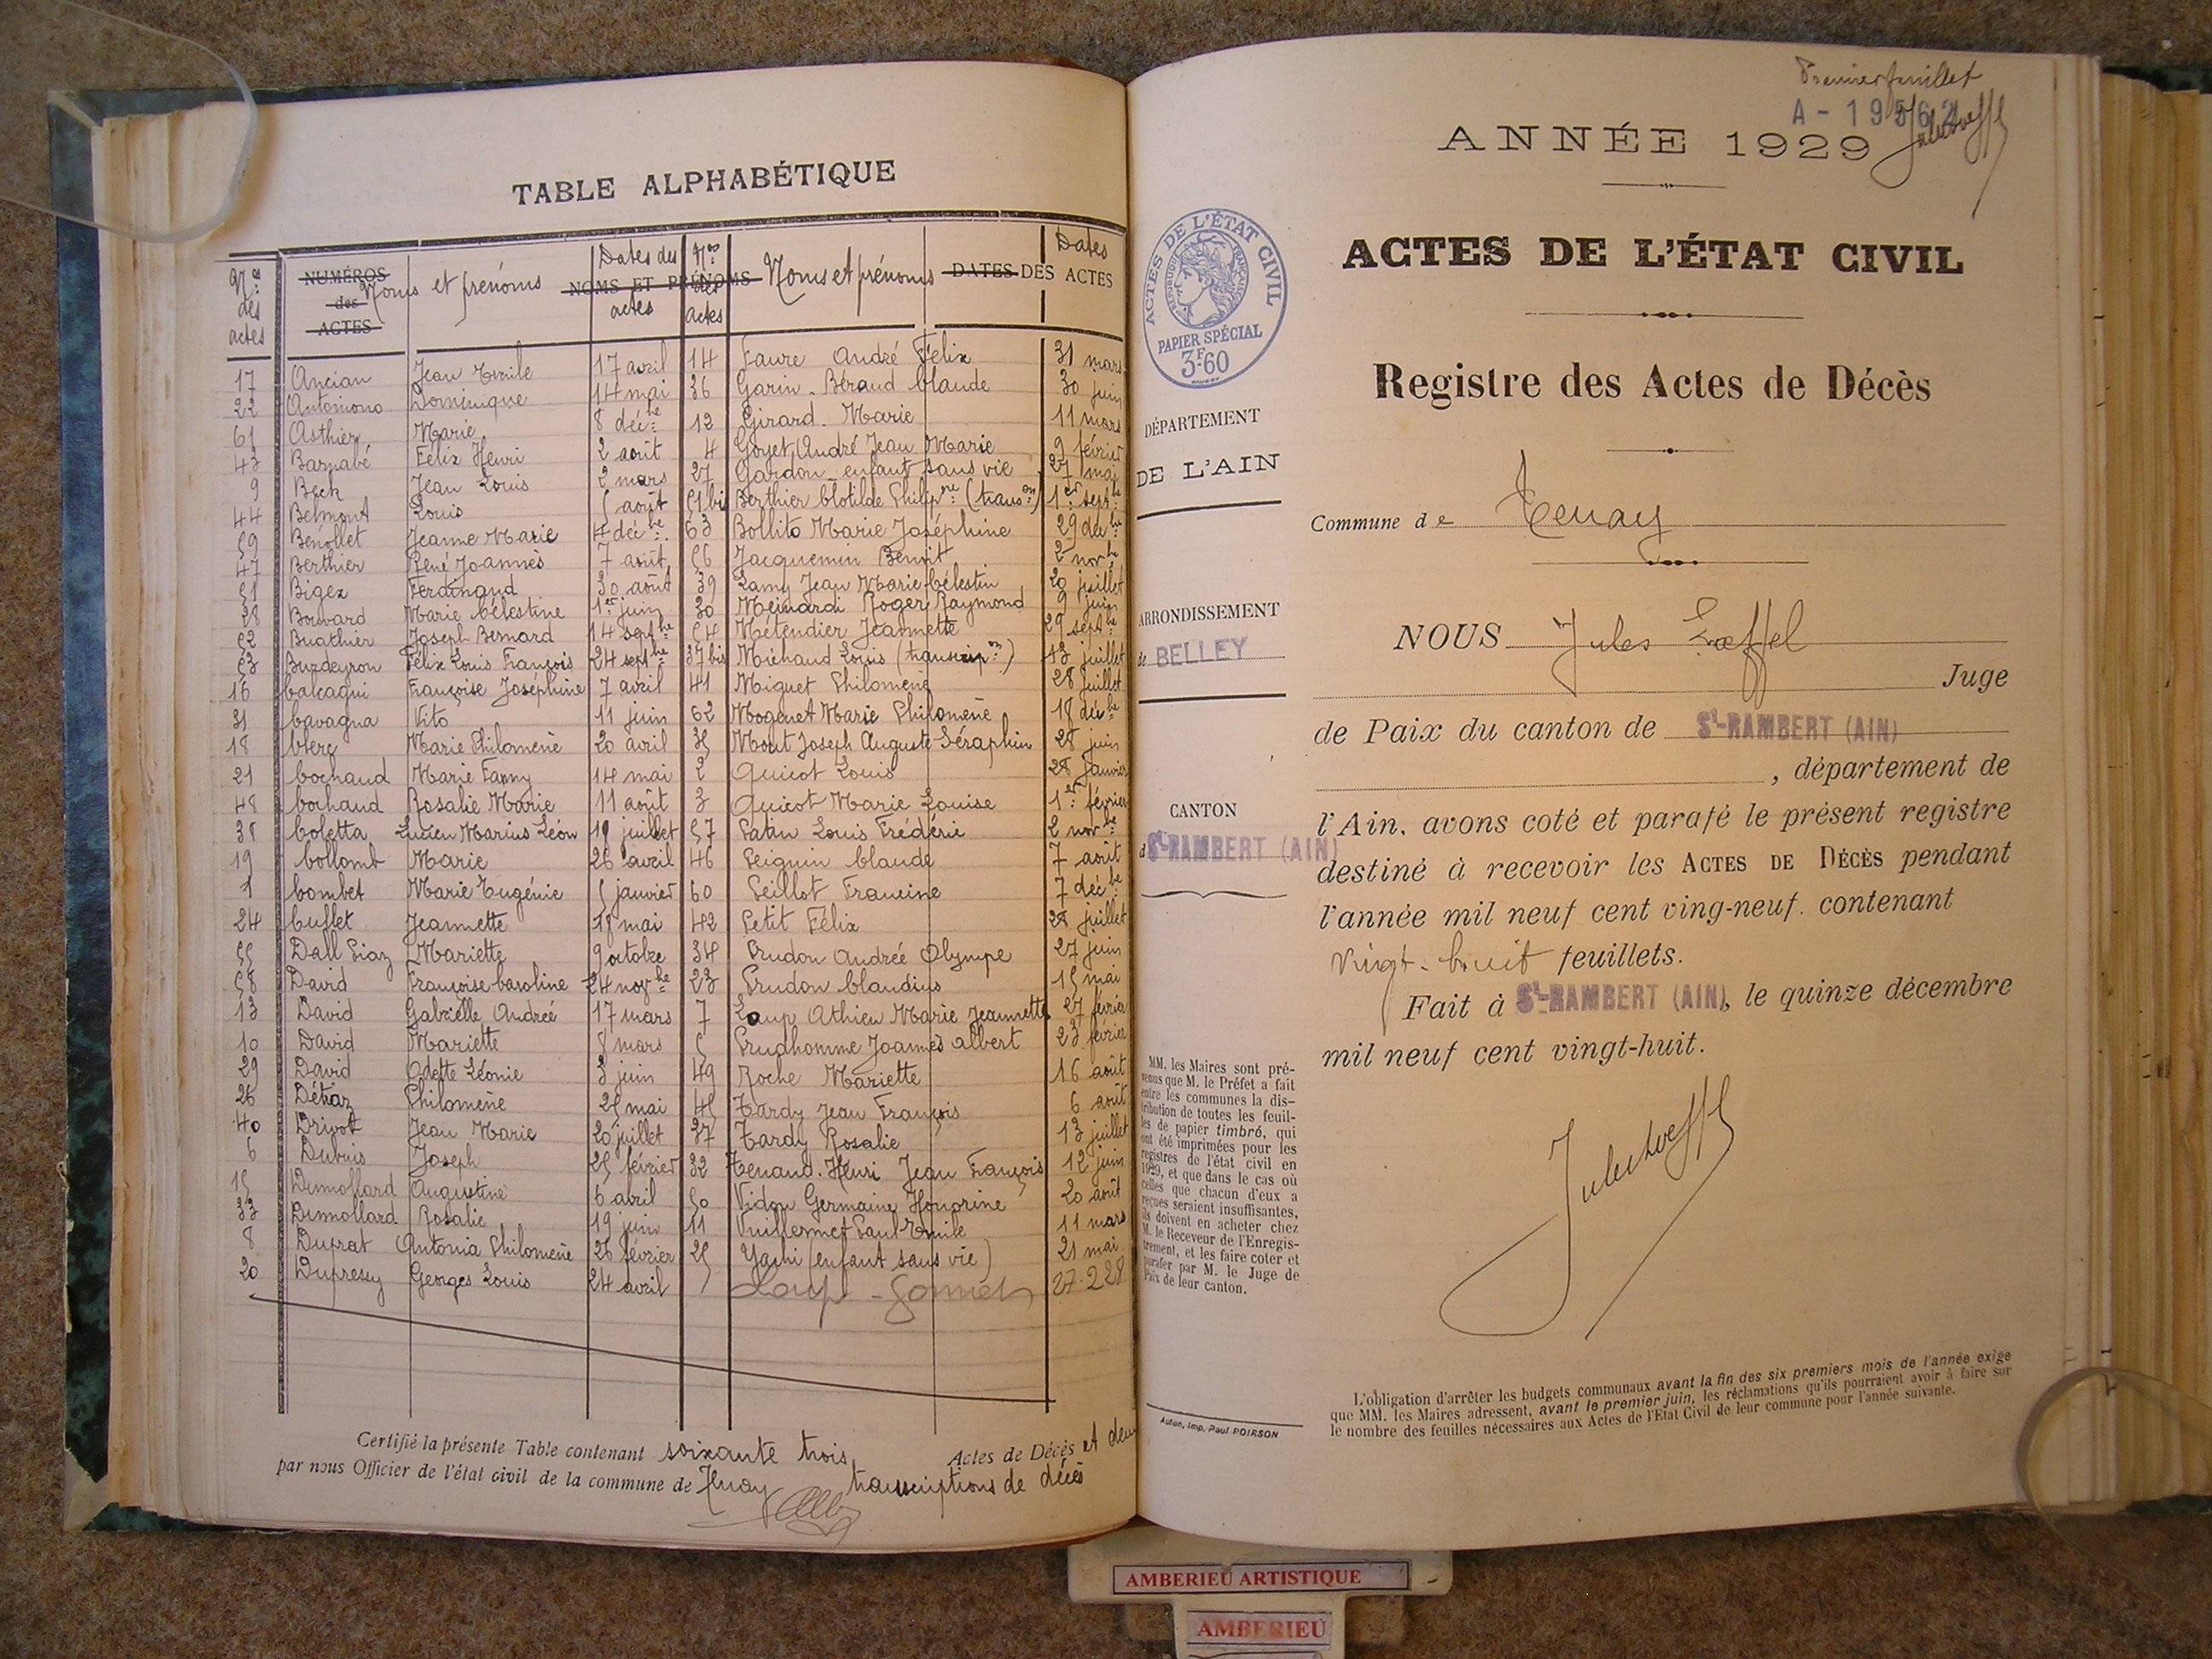 TABLE ALPHABÉTIQUE
Nos des actes
NUMÉROS des ACTES
Noms et prénoms
Dates des actes
NOMS ET PRÉNOMS
Nos des actes
Noms et prénoms
DATES DES ACTES
Dates
17 Ancian Jean Emile 17 avril
22 Antomono Dominique 14 mai
61 Asthier Marie 8 décbre
43 Barnabé Félix Henri 2 août
9 Beck Jean Louis 2 mars
44 Belmont Louis 5 août
59 Benollet Jeanne Marie 4 décbre
47 Berthier René Joannès 7 août
51 Bigex Ferdinand 30 août
28 Bouvard Marie Célestine 1er juin
52 Buathier Joseph Bernard 14 septbre
53 Burdeyron Félix Louis François 24 septbre
16 Calcagui Françoise Joséphine 7 avril
31 Cavagna Vito 11 juin
18 Clerc Marie Philomène 20 avril
21 Cochaud Marie Fanny 14 mai
48 Cochaud Rosalie Marie 11 août
38 Coletta Lucien Marius Léon 19 juillet
19 Collomb Marie 26 avril
1 Combet Marie Eugénie 5 janvier
24 Cullet Jeannette 18 mai
55 Dall Piaz Mariette 9 octobre
58 David Françoise Caroline 24 novbre
13 David Gabrielle Andrée 17 mars
10 David Mariette 8 mars
29 David Odette Léonie 3 juin
26 Déthaz Philomène 25 mai
40 Drivot Jean Marie 20 juillet
6 Dubuis Joseph 25 février
15 Dumollard Augustine 6 avril
33 Dumollard Rosalie 19 juin
8 Duprat Antonia Philomène 26 février
20 Dupressy Georges Louis 24 avril
14 Faure André Félix 31 mars
36 Garin-Béraud Claude 30 juin
12 Girard Marie 11 mars
4 Goyet André Jean Marie 9 février
27 Gardon enfant sans vie 27 mai
51bis Berthier Clotilde Philipne (transon) 1er septbre
63 Bollito Marie Joséphine 29 décbre
56 Jacquemin Benoit 2 novbre
39 Lamy Jean Marie Célestin 20 juillet
30 Meinardi Roger Raymond 9 juin
54 Métendier Jeannette 29 septbre
37bis Michaud Louis (transcripon) 13 juillet
41 Miguet Philomène 28 juillet
62 Mogenet Marie Philomène 18 décbre
35 Mout Joseph Auguste Séraphin 28 juin
2 Quicot Louis 28 janvier
3 Quicot Marie Louise 1er février
57 Patin Louis Frédéric 2 novbre
46 Peiguin Claude 7 août
60 Peillot Francine 7 décbre
42 Petit Félix 28 juillet
34 Prudon Andrée Olympe 27 juin
23 Prudon Claudius 15 mai
7 Loup Athieu Marie Jeannette 27 février
5 Prudhomme Joannès Albert 23 février
49 Roche Mariette 16 août
45 Tardy Jean François 6 août
37 Tardy Rosalie 13 juillet
32 Tenand Henri Jean François 12 juin
50 Vidon Germaine Honorine 20 août
11 Vuillermet Paul Emile 11 mars
25 Yami (enfant sans vie) 21 mai
7 Loup 27.2.28
Certifié la présente Table contenant soixante trois Actes de Décès et deux
par nous Officier de l'état civil de la commune de Tenay transcriptions de décès
Premier feuillet
A - 19562
ANNÉE 1929
ACTES DE L'ÉTAT CIVIL
Registre des Actes de Décès
ACTES DE L'ÉTAT CIVIL
RÉPUBLIQUE FRANÇAISE
PAPIER SPÉCIAL
3F60
DÉPARTEMENT
DE L'AIN
ARRONDISSEMENT
de BELLEY
CANTON
d St-RAMBERT (AIN)
MM. les Maires sont pré-
venus que M. le Préfet a fait
entre les communes la dis-
tribution de toutes les feuil-
les de papier timbré, qui
ont été imprimées pour les
registres de l'état civil en
1929, et que dans le cas où
celles que chacun d'eux a
reçues seraient insuffisantes,
ils doivent en acheter chez
M. le Receveur de l'Enregis-
trement, et les faire coter et
parafer par M. le Juge de
Paix de leur canton.
Autun, Imp. Paul POIRSON
Commune de Tenay
NOUS Jules Lœffel
Juge
de Paix du canton de St-RAMBERT (AIN)
, département de
l'Ain, avons coté et parafé le présent registre
destiné à recevoir les ACTES DE DÉCÈS pendant
l'année mil neuf cent ving-neuf. contenant
vingt-huit feuillets.
Fait à St-RAMBERT (AIN), le quinze décembre
mil neuf cent vingt-huit.
L'obligation d'arrêter les budgets communaux avant la fin des six premiers mois de l'année exige
que MM. les Maires adressent, avant le premier juin, les réclamations qu'ils pourraient avoir à faire sur
le nombre des feuilles nécessaires aux Actes de l'Etat Civil de leur commune pour l'année suivante.
AMBERIEU ARTISTIQUE
AMBERIEU